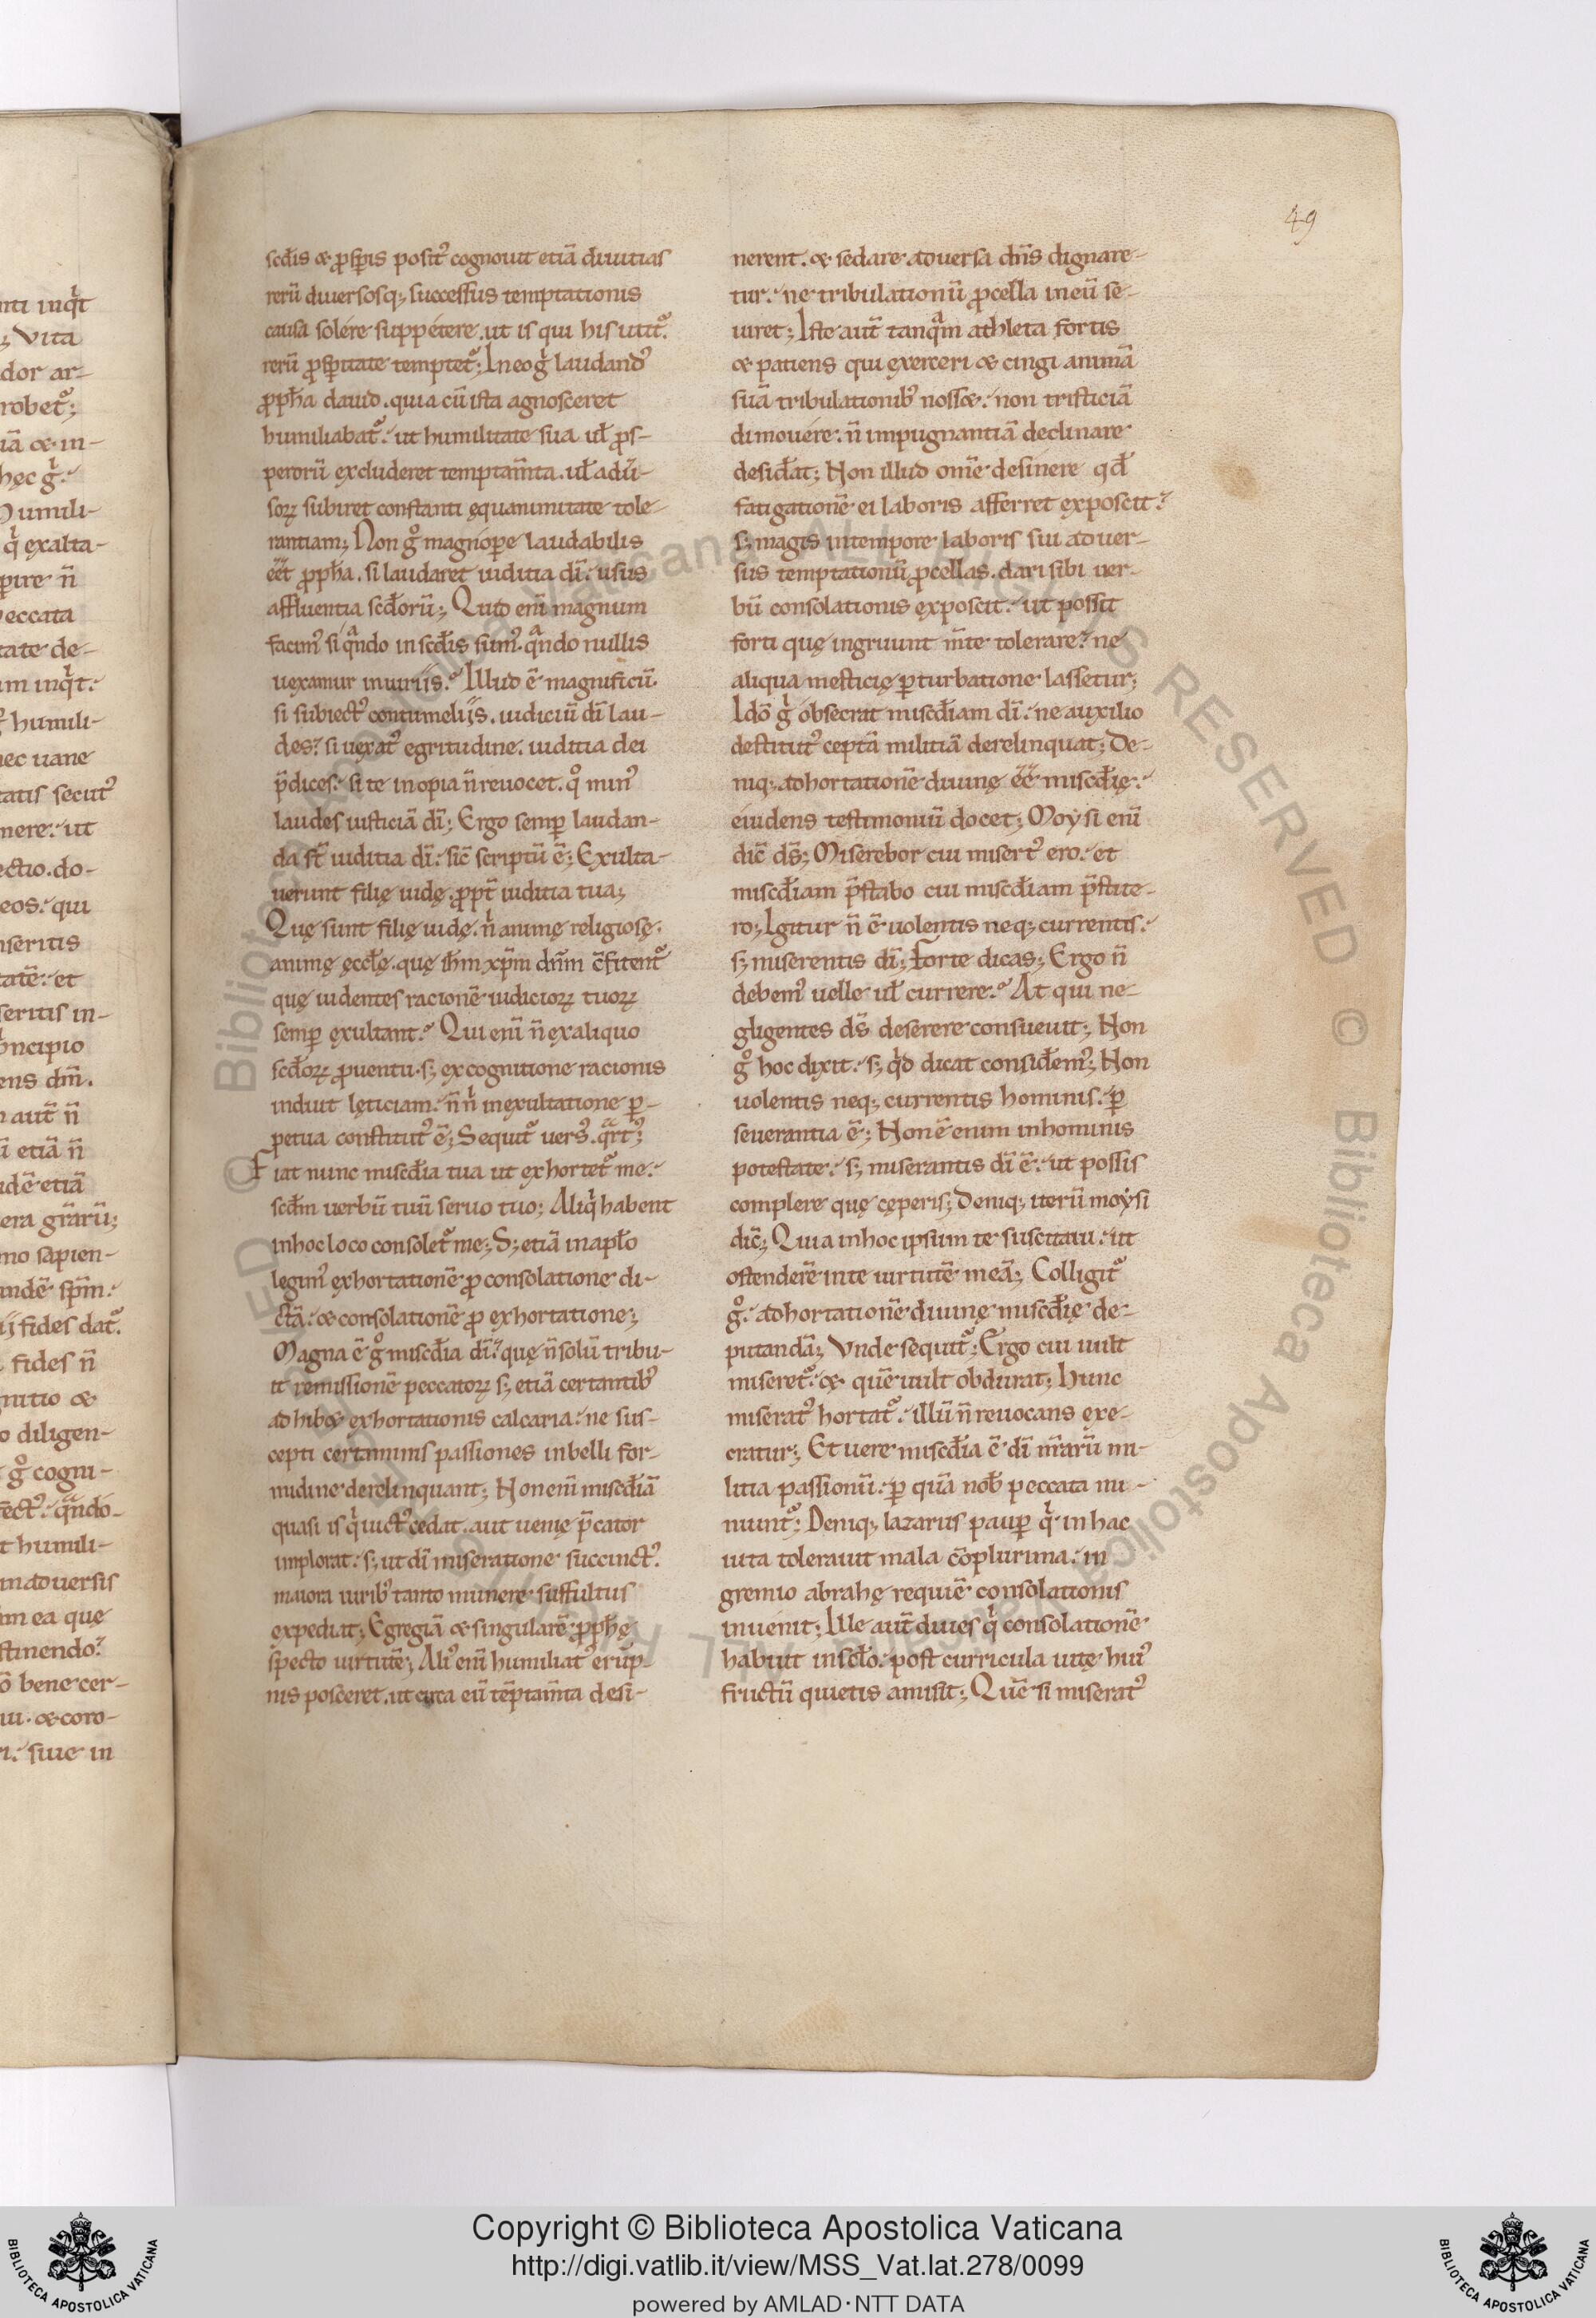 49
scd̄is & ꝓspis posit᷒ cognouit etiā diuitias
rerū diuersosq; successus temptationis
causa solere suppetere. ut is qui his utit᷑.
rerū ꝓspitate temptet᷑; In eo g̊ laudand᷒
ꝓph̄a dauid. quia cū ista agnosceret
humiliabat᷑. ut humilitate sua ul̄ ꝓs-
perorū excluderet temptam̄ta. ul̄ adū-
soꝝ subiret constanti ęquanimitate tole-
rantiam; Non g̊ magnioꝑe laudabilis
eēt ꝓph̄a. si laudaret iuditia dī. usus
affluentia scd̄orū; Quid enī magnum
facim᷒ si qᵃndo in scd̄is sum᷒. qᵃndo nullis
uexamur iniuriis. Illud ē magnificū.
si subiect᷒ contumeliis. iudiciū dī lau-
des. si uexat᷒ egritudine. iuditia dei
p̄dices. si te inopia n̄ reuocet. qͦ min᷒
laudes iusticiā dī; Ergo semꝑ laudan-
da st̄ iuditia dī. sic̄ scriptū ē; Exulta-
uerunt filię iudę. ꝓpt̄ iuditia tua;
Quę sunt filię iudę. nⁱ animę religiosę.
animę ęccl̄ę. quę ih̄m xp̄m dn̄m c̄fitent᷑
quę uidentes racionē iudicioꝝ tuoꝝ
semꝑ exultant. Qui enī n̄ ex aliquo
scd̄oꝝ ꝓuentu. s; ex cognitione racionis
induit lęticiam. n̄nⁱ in exultatione ꝑ-
petua constitut᷒ ē; Sequit᷑ uers᷒. qᵃrt᷒;
Fiat nunc miscd̄ia tua ut exhortet᷑ me.
scd̄m uerbū tuū seruo tuo; Aliqⁱ habent
in hoc loco consolet᷑ me; S; etiā in apl̄o
legim᷒ exhortationē ꝓ consolatione di-
ctā. & consolationē ꝓ exhortatione;
Magna ē g̊ miscd̄ia dī. quę n̄ solū tribu-
it remissionē peccatoꝝ s; etiā certantib᷒
adhib& exhortationis calcaria. ne sus-
cepti certiminis passiones inbelli for-
midine derelinquant; Non enī miscd̄iā
quasi is qⁱ uict᷒ cedat. aut uenię p̄cator
implorat. s; ut dī miseratione succinct᷒.
maiora uirib᷒ tanto munere suffultus
expediat; Egregiā & singularē ꝓph̄ę
specto uirtutē; Ali᷒ enī humiliat᷒ erūp-
nis posceret. ut circa eū tēptam̄ta desi-
nerent. & sedare aduersa dn̄s dignare-
tur. ne tribulationū ꝓcella in eū se-
uiret; Iste aut̄ tanqᵃm athleta fortis
& patiens qui exerceri & cingi animā
suā tribulationib᷒ noss&. non tristiciā
dimouere. n̄ impugnantiā declinare
desid̄at; Non illud om̄e desinere qd̄
fatigationē ei laboris afferret exposcit.
s; magis in tempore laboris sui aduer-
sus temptationū ꝓcellas. dari sibi uer-
bū consolationis exposcit. ut possit
forti quę ingruunt m̄te tolerare. ne
aliqua mesticię ꝑturbatione lassetur;
Idō gⁱ obsecrat miscd̄iam dī. ne auxilio
destitut᷒ ceptā militiā derelinquat; De-
niq; adhortationē diuinę eē miscd̄ię.
euidens testimoniū docet; Moysi enī
dic̄ ds̄; Miserebor cui misert᷒ ero. et
miscd̄iam p̄stabo cui miscd̄iam p̄stite-
ro; Igitur n̄ ē uolentis neq; currentis.
s; miserentis dī; Forte dicas; Ergo n̄
debem᷒ uelle ul̄ currere. At qui ne-
gligentes ds̄ deserere consueuit; Non
g̊ hoc dixit. s; qⁱd dicat consid̄em᷒; Non
uolentis neq; currentis hominis. ꝑ
seuerantia ē; Non ē enim in hominis
potestate. s; miserantis dī ē. ut possis
complere quę cęperis; Deniq; uerū moysi
dic̄; Quia in hoc ipsum te suscitaui. ut
ostenderē in te uirtutē meā; Colligit᷑
g̊. adhortationē diuinę miscd̄ię de-
putandā; Vnde sequit᷑; Ergo cui uult
miseret᷑. & quē uult obdurat; Hunc
miserat᷒ hortat᷑. illū n̄ reuocans exe-
cratur; Et uere miscd̄ia ē dī m̄arū mi-
litia passionū. ꝑ quā nob̄ peccata mi-
nuunt᷑; Deniq; lazarus pauꝑ qⁱ in hac
uita tolerauit mala cōplurima. in
gremio abrahę requiē consolationis
inuenit; Ille aut̄ diues qⁱ consolationē
habuit in scl̄o. post curricula uitę hui᷒
fructū quietis amisit; Quē si miserat᷒
Copyright © Biblioteca Apostolica Vaticana
http://digi.vatlib.it/view/MSS_Vat.lat.278/0099
powered by AMLAD·NTT DATA